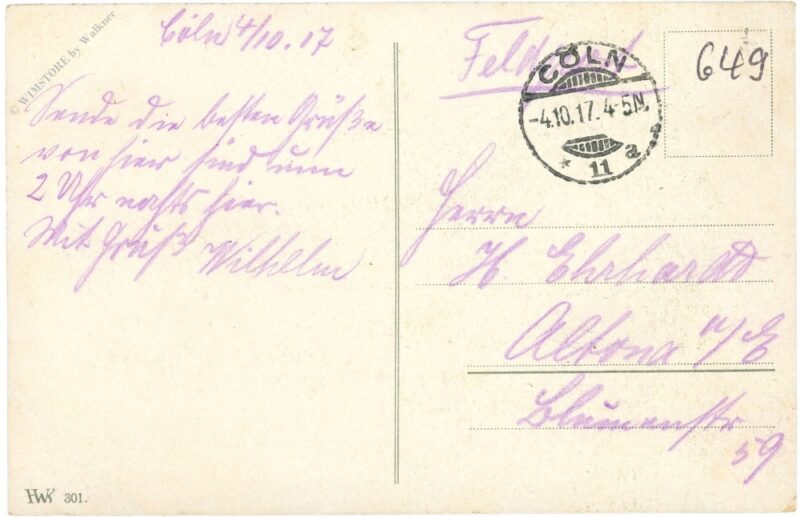 © WIMSTORE by Walkner
Cöln 4/10.17
Sende die besten Grüße
von hier sind um
2 Uhr nachts hier.
Mit Gruß Wilhelm
HWK 301.
Feldpost
CÖLN
-4.10.17. 4-5N.
* 11 a
649
Herrn
H. Ehrhardt
Altona a/E
Blumenstr
59